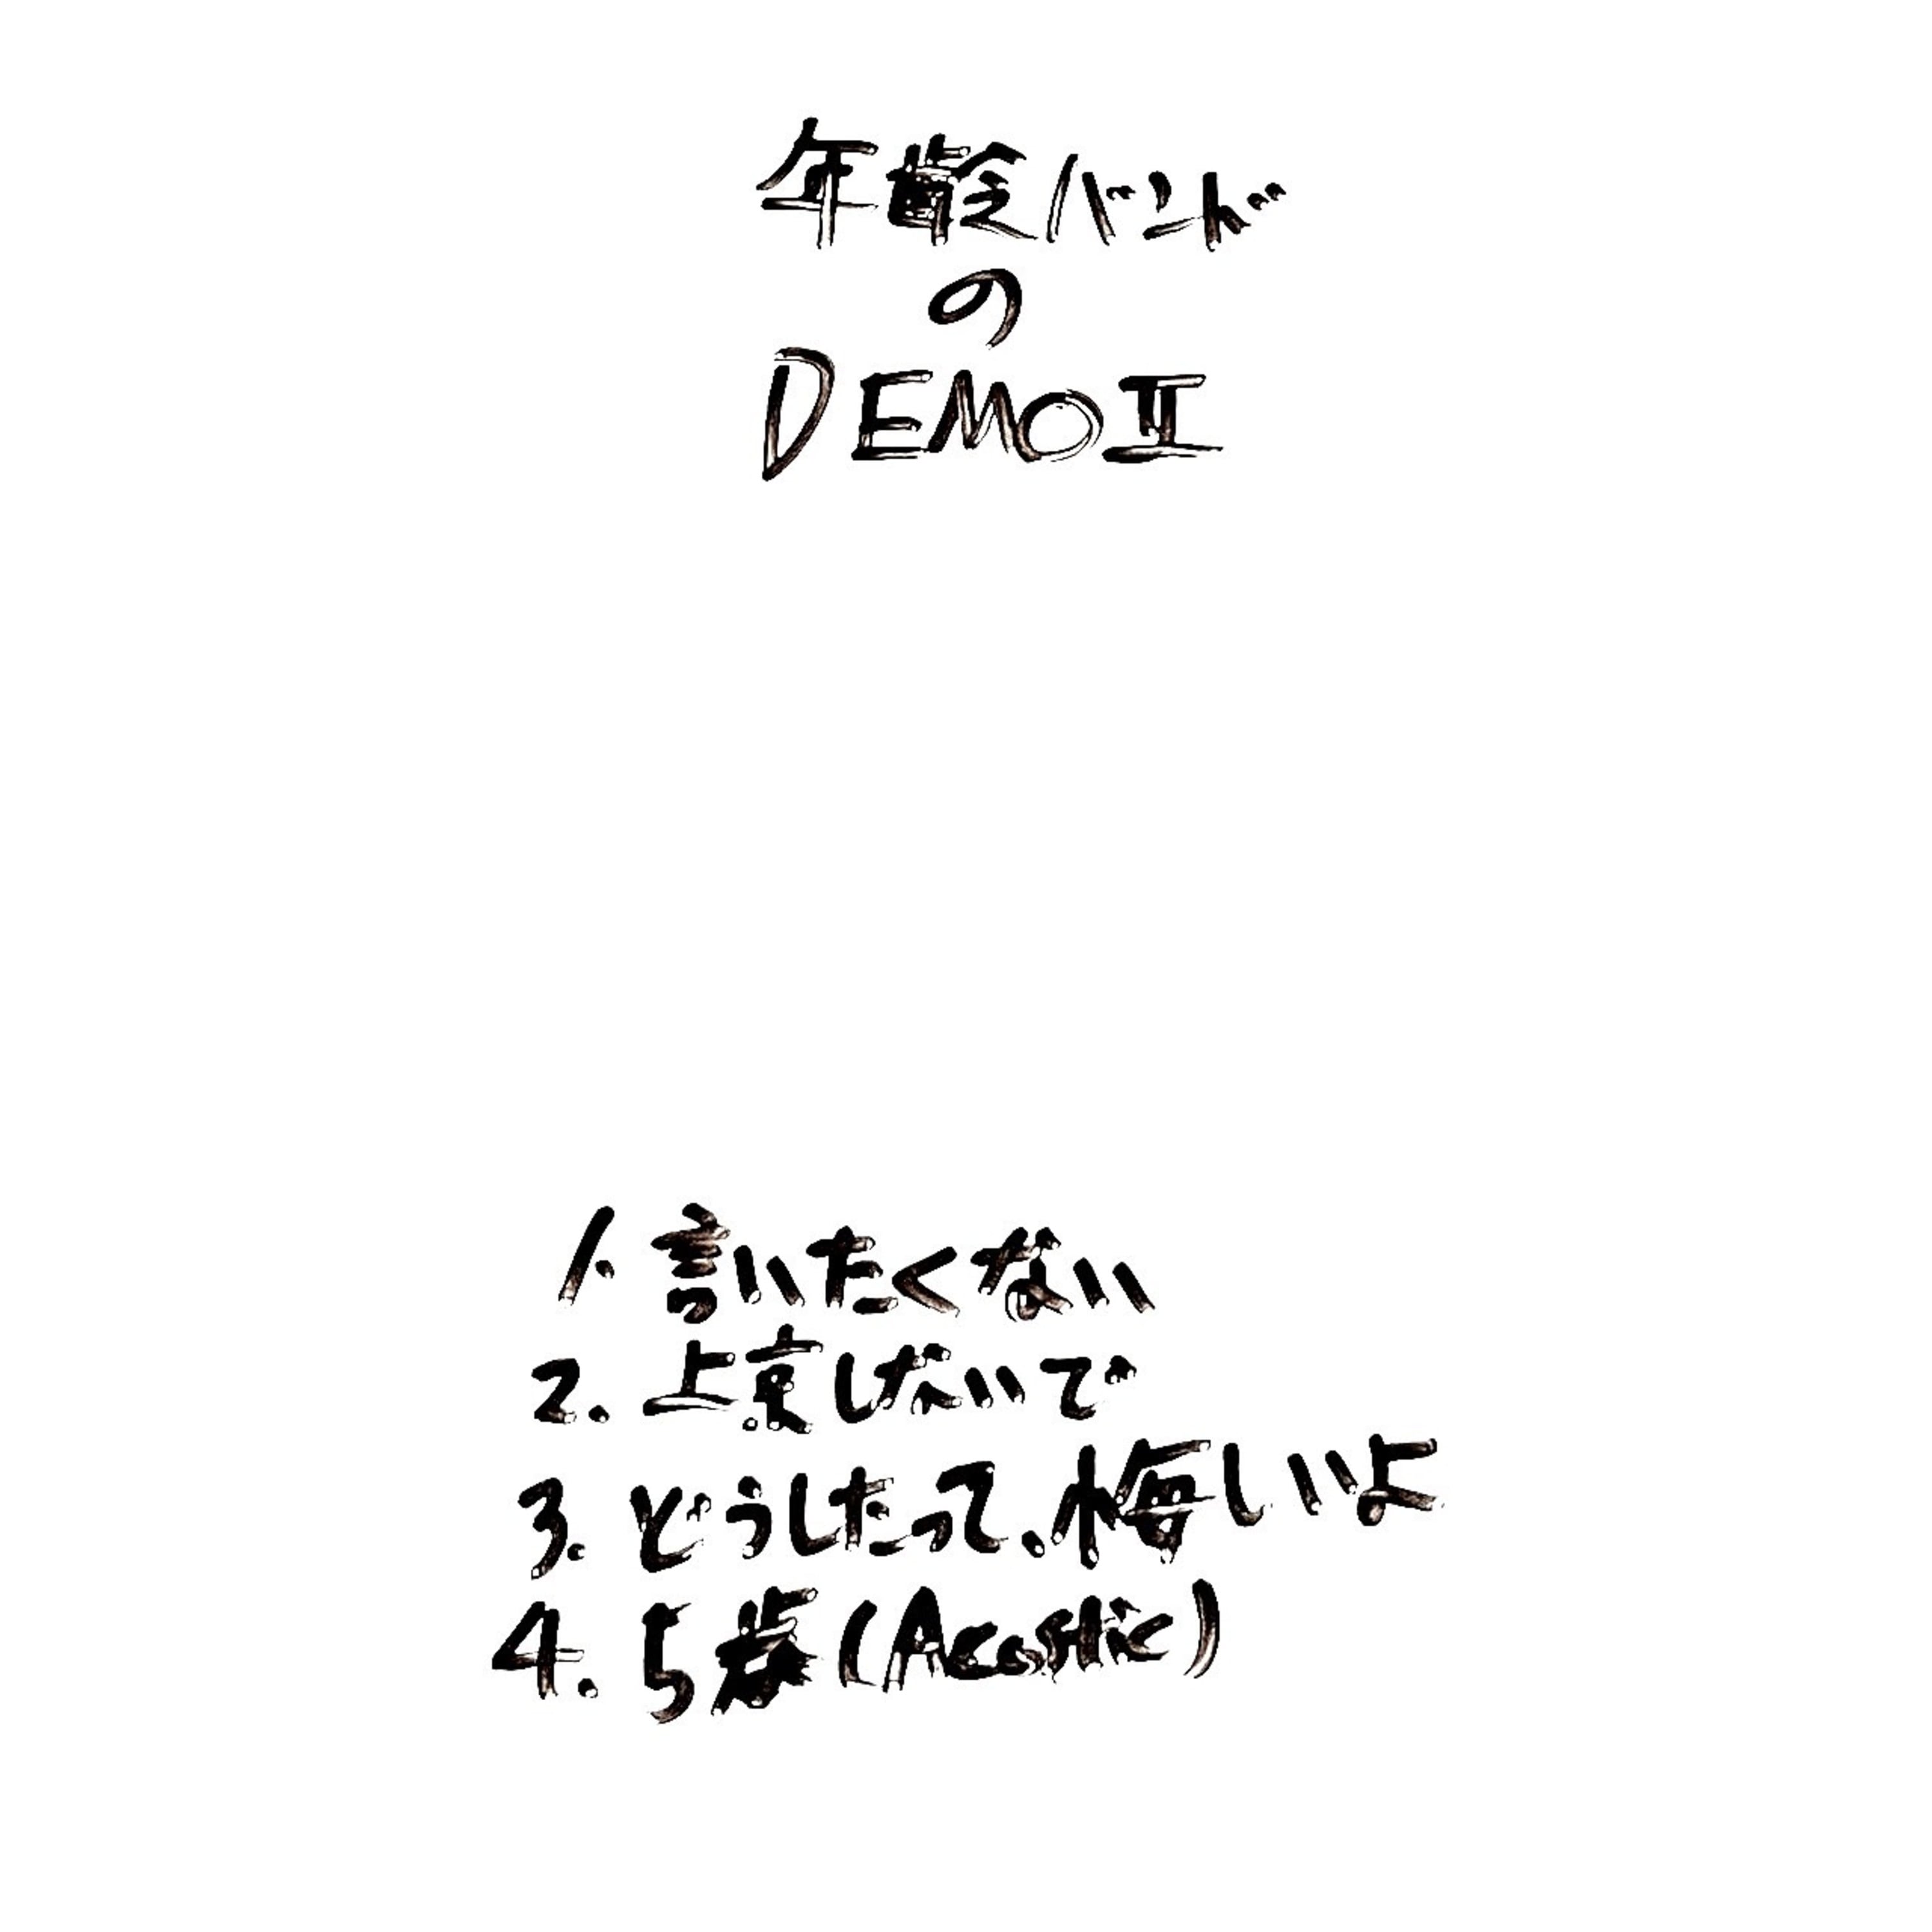 年齢バンド
の
DEMOⅡ
1. 言いたくない
2. 上京しないで
3. どうしたって、悔しいよ
4. 5歩 (Acostic)